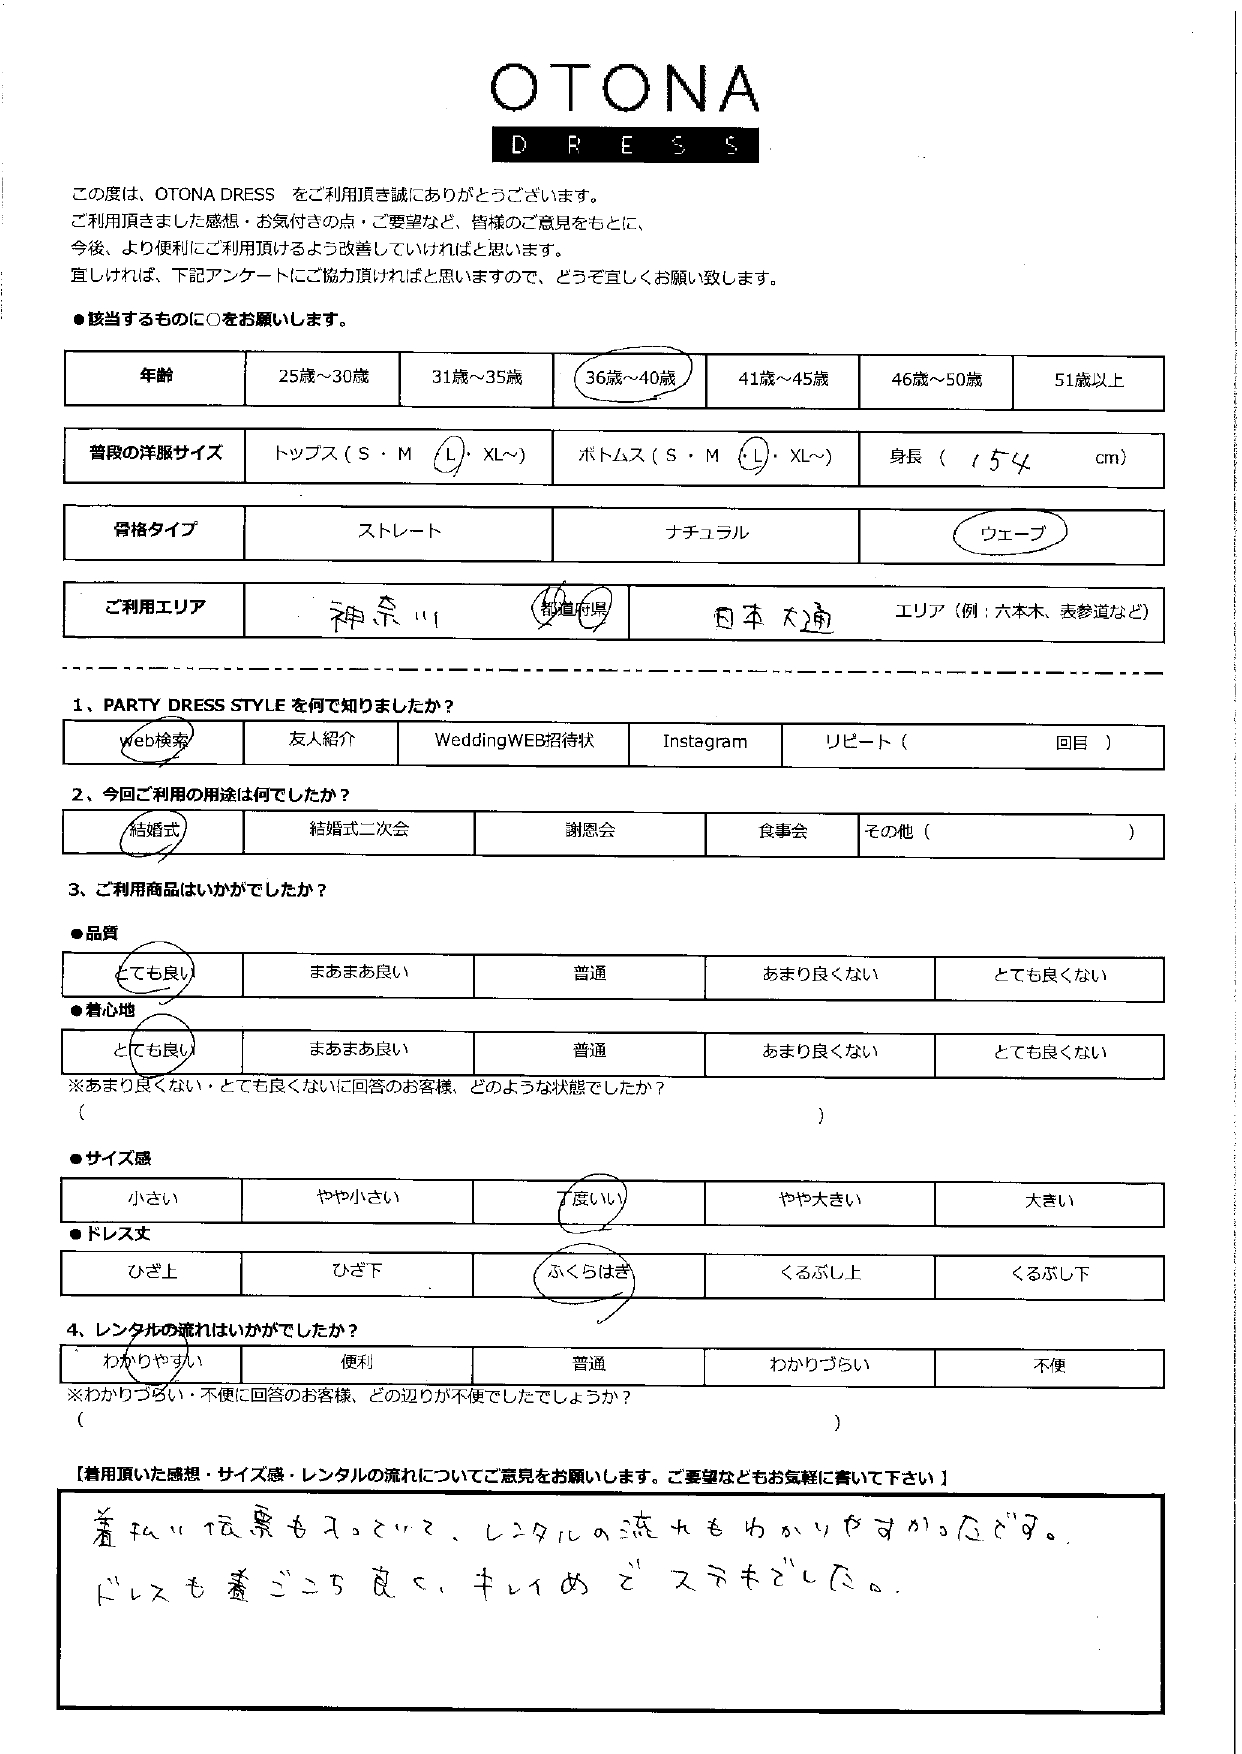 OTONA
DRESS
この度は、OTONA DRESS　をご利用頂き誠にありがとうございます。
ご利用頂きました感想・お気付きの点・ご要望など、皆様のご意見をもとに、
今後、より便利にご利用頂けるよう改善していければと思います。
宜しければ、下記アンケートにご協力頂ければと思いますので、どうぞ宜しくお願い致します。
●該当するものに○をお願いします。
年齢 25歳～30歳 31歳～35歳 36歳～40歳 41歳～45歳 46歳～50歳 51歳以上
普段の洋服サイズ トップス ( S ・ M ・ L ・ XL～) ボトムス ( S ・ M ・ L ・ XL～) 身長 ( 154 cm)
骨格タイプ ストレート ナチュラル ウェーブ
ご利用エリア 神奈川 都道府県 日本大通 エリア（例：六本木、表参道など）
1、PARTY DRESS STYLE を何で知りましたか？
web検索 友人紹介 WeddingWEB招待状 Instagram リピート ( 回目 )
2、今回ご利用の用途は何でしたか？
結婚式 結婚式二次会 謝恩会 食事会 その他 ( )
3、ご利用商品はいかがでしたか？
●品質
とても良い まあまあ良い 普通 あまり良くない とても良くない
●着心地
とても良い まあまあ良い 普通 あまり良くない とても良くない
※あまり良くない・とても良くないに回答のお客様、どのような状態でしたか？
( )
●サイズ感
小さい やや小さい 丁度いい やや大きい 大きい
●ドレス丈
ひざ上 ひざ下 ふくらはぎ くるぶし上 くるぶし下
4、レンタルの流れはいかがでしたか？
わかりやすい 便利 普通 わかりづらい 不便
※わかりづらい・不便に回答のお客様、どの辺りが不便でしたでしょうか？
( )
【着用頂いた感想・サイズ感・レンタルの流れについてご意見をお願いします。ご要望などもお気軽に書いて下さい 】
着払い伝票も入っていて、レンタルの流れもわかりやすかったです。
ドレスも着ごこち良く、キレイめでステキでした。